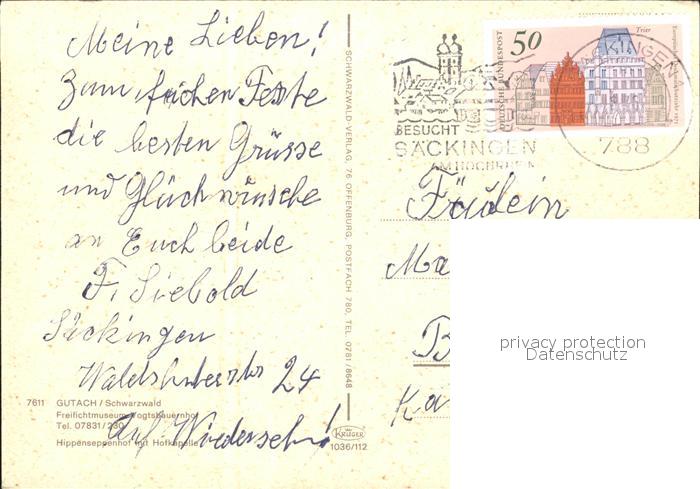 Meine Lieben!
Zum frohen Feste
die besten Grüsse
und Glückwünsche
an Euch beide
F. Siebold
Säckingen
24
Auf Wiedersehn!
7611 GUTACH / Schwarzwald
Freilichtmuseum Vogtsbauernhof
Tel. 07831/230
Hippenseppenhof mit Hofkapelle
SCHWARZWALD-VERLAG, 76 OFFENBURG, POSTFACH 780, TEL. 0781/8648
KRÜGER
1036/112
DEUTSCHE BUNDESPOST
50
Trier
BESUCHT
SÄCKINGEN
AM HOCHRHEIN
SÄCKINGEN
788
Fräulein
Ma
B
Ka
privacy protection
Datenschutz